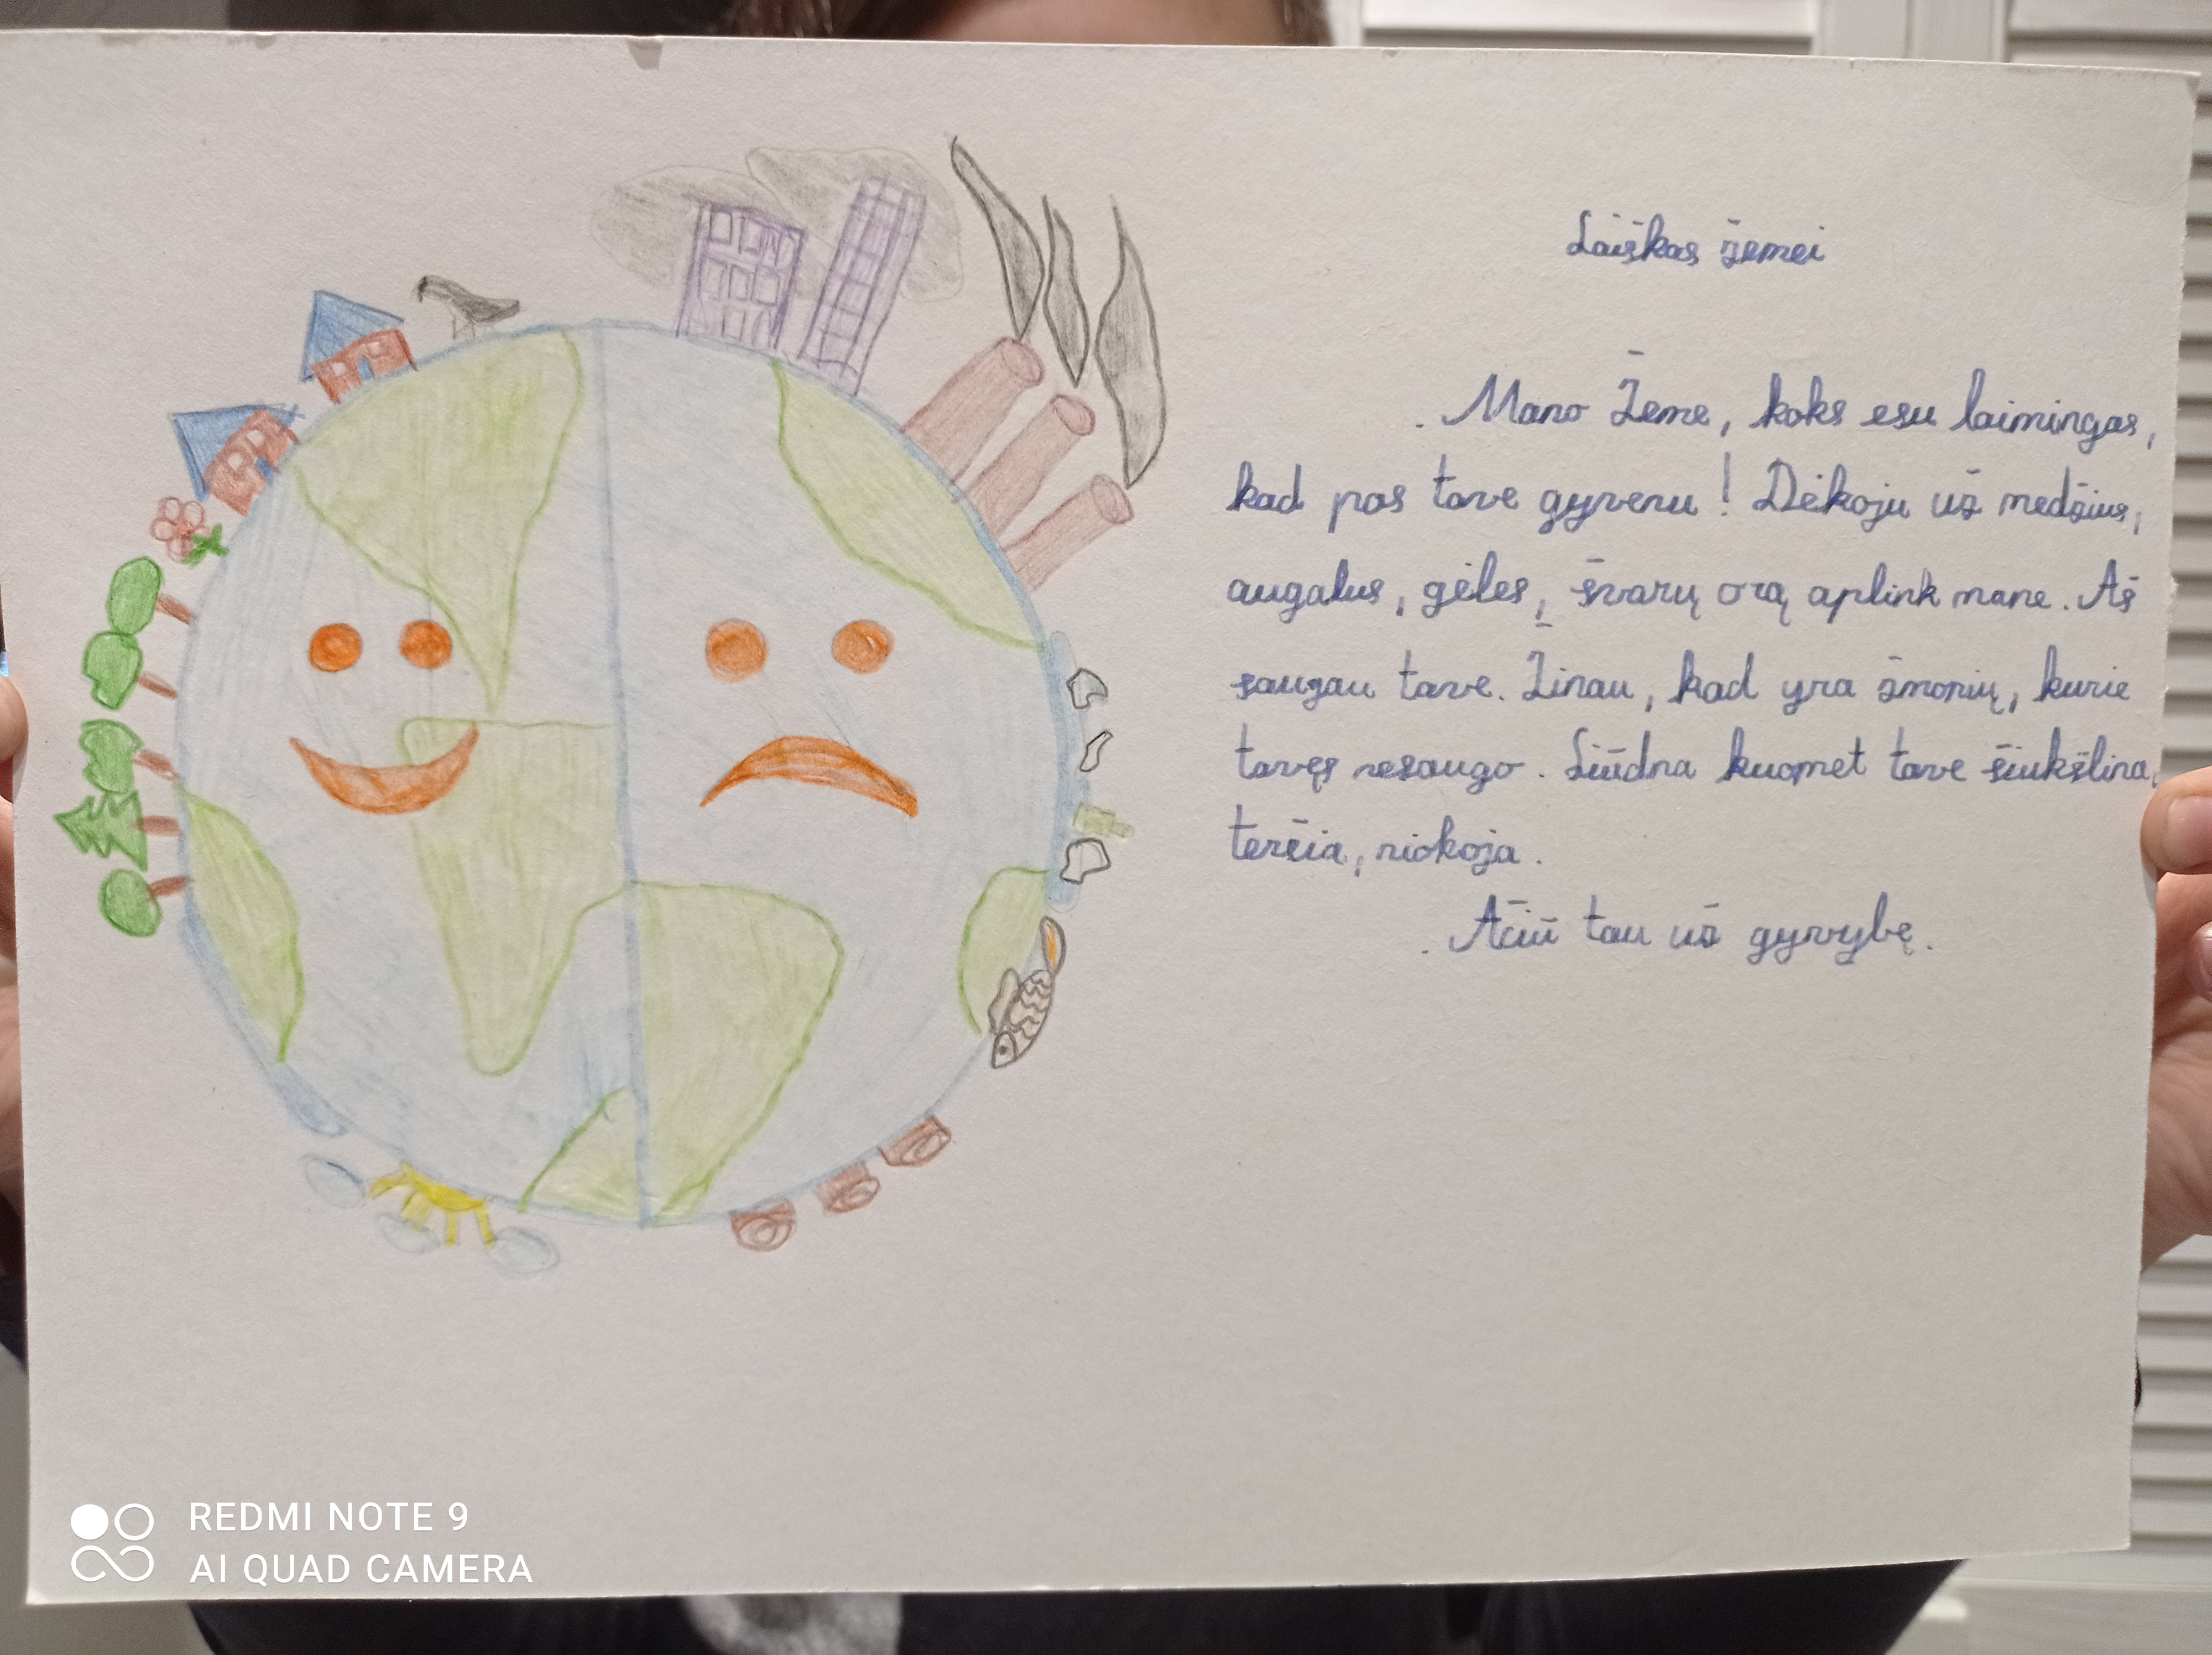 Laiškas žemei
Mano Žeme, koks esu laimingas,
kad pas tave gyvenu! Dėkoju už medžius,
augalus, gėles, švarų orą aplink mane. Aš
saugau tave. Žinau, kad yra žmonių, kurie
tavęs nesaugo. Liūdna kuomet tave šiukšlina,
teršia, niokoja.
Ačiū tau už gyvybę.
REDMI NOTE 9
AI QUAD CAMERA